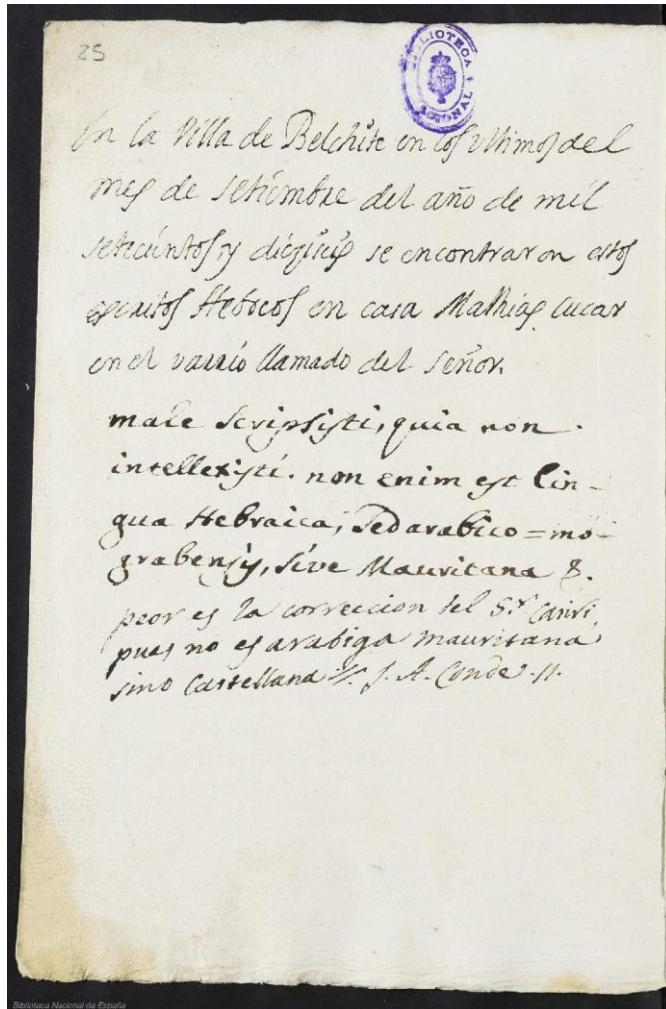 25
BIBLIOTECA NACIONAL
En la Villa de Belchite en los ultimos del
mes de setiembre del año de mil
setecientos y dieziseis se encontraron estos
escritos Hebreos en casa Mathias Cucar
en el varrio llamado del señor.
male scripsisti, quia non
intellexisti. non enim est lin-
gua Hebraica, sed arabico=mo-
grabensis, sive Mauritana &.
peor es la correccion del Sr. Casiri,
pues no es arabiga mauritana
sino Castellana J. A. Conde
Biblioteca Nacional de España